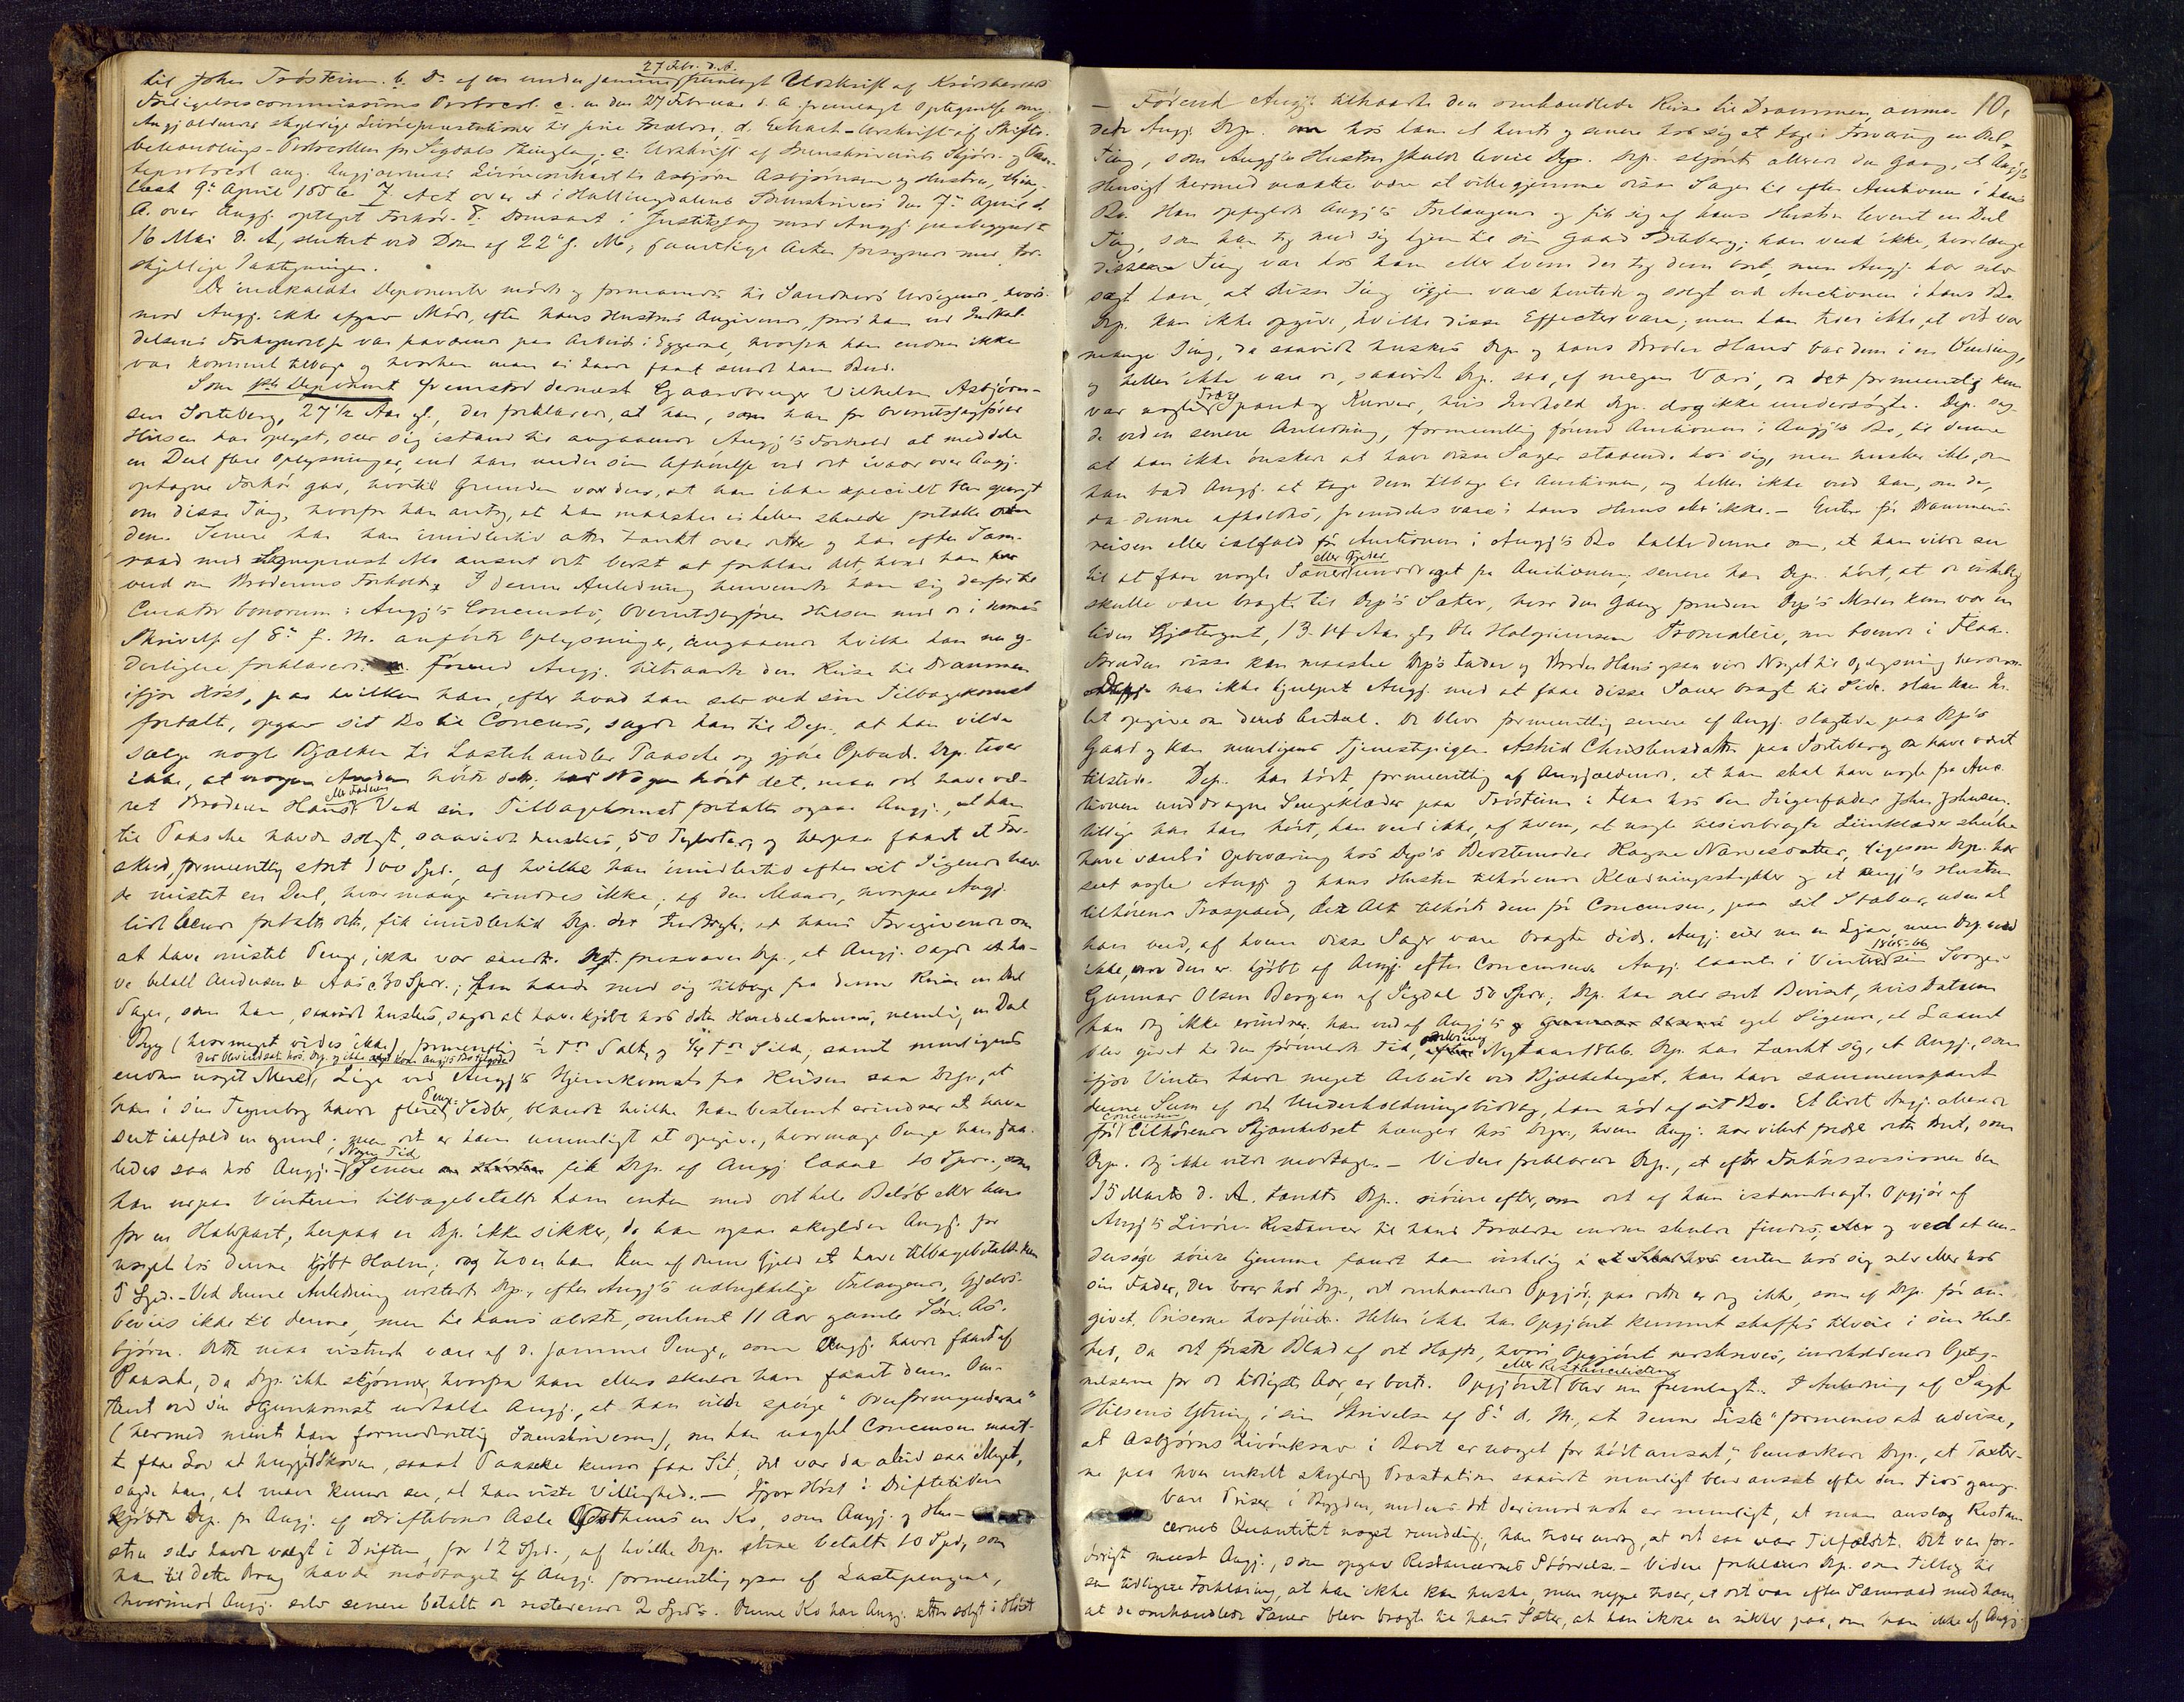 27 Febr. d. A.
til John Trøsteim. b. Do af en under samme fremlagt Udskrift af Krødsherreds
Forligelsescommissions Protocol. c. en den 27 Februar d. A. fremlagt Optegnelse ang.
Angjældendes skyldige Livørepræstationer til sine Forældre, d. Extract-Udskrift af Skifte-
behandlings-Protocollen for Sigdals Thinglag, e. Udskrift af Sorenskriveriets Skjøde- og Pan-
teprotocol ang. Angjældendes Livørecontract til Asbjørn Asbjørnsen og Hustru, thin-
læst 9de April 1856 f Act over et i Hallingdalens Sorenskriveri den 7de April d.
A. over Angj. optaget Forhør. g. Domsact i Justitssag mod Angj. paabegyndt
16 Mai d. A., sluttet ved Dom af 22de f. M.; samtlige Acter forsynede med for-
skjellige Paategninger.
De indkaldte Deponenter mødte og formanedes til Sandheds Udsigende, hvor-
imod Angj. ikke afgav Møde, efter hans Hustrus Angivende, fordi han ved Indkal-
delsens Forkyndelse var fraværende paa Arbeide i Eggerne, hvorfra han endnu ikke
var kommet tilbage og hvorhen man ei havde faaet sendt ham Bud.
Som 1ste Deponent fremstod dernæst Gaardbruger Vilhelm Asbjørn-
sen Sorteberg, 27 1/2 Aar gl., der forklarede, at han, som han for Overretssagfører
Hiisen har oplyst, seer sig istand til angaaende Angj's Forhold at meddele
en Deel flere Oplysninger, end han under sin Afhørelse ved det ivaar over Angj.
optagne Forhør gav, hvortil Grunden var den, at han ikke specielt blev spurgt
om disse Ting, hvorfor han antog, at han maaskee ei heller skulde fortælle om
dem. Senere har han imidlertid atter tænkt over dette og har efter Sam-
raad med Sogneprest Mo anseet det bedst at forklare Alt, hvad han
veed om Broderens Forhold. I denne Anledning henvendte han sig derfor til
Curator bonorum i Angj's Concursbo, Overretssagfører Hiisen med de i hans
Skrivelse af 8de f. M. anførte Oplysninger, angaaende hvilke han nu y-
derligere forklarede: Førend Angj. tiltraadte den Reise til Drammen
ifjor Høst, paa hvilken han, efter hvad han selv ved sin Tilbagekomst
fortalte, opgav sit Bo til Concurs, sagde han til Dep., at han vilde
sælge nogle Bjælker til Lasthandler Paasche og gjøre Opbud. Dep. troer
ikke, at nogen Anden hørte det; har Nogen hørt det, maa det have væ-
ell. Faderen
ret Broderen Hans. Ved sin Tilbagekomst fortalte ogsaa Angj., at han
til Paasche havde solgt, saavidt huskes, 50 Tylvter, og herpaa faaet et For-
skud, formeentlig stort 100 Spd., af hvilke han imidlertid efter sit Sigende hav-
de mistet en Deel, hvor mange erindres ikke; af den Maade, hvorpaa Angj.
lidt leende fortalte dette, fik imidlertid Dep. det Indtryk, at hans Foregivende om
at have mistet Penge, ikke var sandt. Dgt. foresvæver Dep., at Angj. sagde at ha-
ve betalt Andersen & Aas c. 30 Spd.; Han havde med sig tilbage fra denne Reise en Deel
Sager, som han, saavidt huskes, sagde at have kjøbt hos dette Handelshuus, nemlig en Deel
Byg (hvormeget vides ikke), formentlig 1/2 Tde Salt, og 1/4 Tde Sild, samt muligens
der blev indsat hos Dep. og ikke kom Angj's Bo tilgode
endnu noget Meel. Lige ved Angj's Hjemkomst fra Reisen saa Dep., at
Penge-
han i sin Tegnebog havde flere Sedler, blandt hvilke han bestemt erindrer at have
seet ialfald en guul; men det er ham umuligt at opgive, hvormange Penge han saa-
Nogen Tid
ledes saa hos Angj. Senere fik Dep. af Angj. laane 10 Spd., som
han udpaa Vinteren tilbagebetalte ham enten med det hele Beløb eller kuns
for en Halvpart, herpaa er Dep. ikke sikker, da han ogsaa skyldte Angj. for
noget hos denne kjøbt Halm; dog troer han kun af denne Gjeld at have tilbagebetalt ham
5 Spd. - Ved denne Anledning udstedte Dep., efter Angj's udtrykkelige Forlangende, Gjelds-
beviis ikke til denne, men til hans ældste, omtrent 11 Aar gamle Søn As-
bjørn. Dette maa vistnok være af d. samme Penge, som Angj. havde faaet af
Paasche, da Dep. ikke skjønner, hvorfra han ellers skulde have faaet dem. Om-
trent ved sin Hjemkomst udtalte Angj., at han vilde spørge "Overformynderne"
(hermed meent han formodentlig Sorenskriveren), om han uagtet Concursen maat-
te faae Lov at hugge i Skoven, saaat Paasche kunde faae Sit, det var da altid saa Meget,
sagde han, at man kunde see, at han viste Villighed. - Ifjor Høst i Driftetiden
kjøbte Dep. for Angj. af Driftebonde Asle Gotheims en Ko, som Angj. og Hu-
stru selv havde valgt i Driften, for 12 Spd., af hvilke Dep. strax betalte 10 Spd, som
han til dette Brug havde modtaget af Angj. formeentlig ogsaa af Lastepengene,
hvorimod Angj. selv senere betalte de resterende 2 Spd. Denne Ko har Angj. atter solgt i Høst
10,
- Førend Angj. tiltraadte den omhandlede Reise til Drammen, anmo-
dede Angj. Dep. om hos ham at hente og senere hos sig at tage i Forvaring en Deel
Ting, som Angj's Hustru skulde levere Dep. Dep. skjønte allerede den Gang, at Angj's
Hensigt hermed maatte være at ville gjemme disse Sager til efter Auctionen i hans
Bo. Han opfyldte Angj's Forlangende og fik sig af hans Hustru leveret en Deel
Ting, som han tog med sig hjem til sin Gaard Sorteberg; han veed ikke, hvorlænge
disse Ting var hos ham eller hvem der tog dem bort, men Angj. har selv
sagt ham, at disse Ting igjen vare hentede og solgt ved Auctionen i hans Bo.
Dep. kan ikke opgive, hvilke disse Effecter vare; men han troer ikke, at det var
mange Ting, da saavidt huskes Dep. og hans Broder Hans bar dem i en Vending,
og heller ikke vare de, saavidt Dep. saa, af megen Værd, da det formeentlig kun
Træ
var nogle spand og Kurver, hvis Indhold Dep. dog ikke undersøgte. Dep. sag-
de ved en senere Anledning, formeentlig førend Auctionen i Angj's Bo, til denne
at han ikke ønskede at have disse Sager staaende hos sig, men husker ikke, om
han bad Angj. at tage dem tilbage til Auctionen, og heller ikke veed han, om de,
da denne afholdtes, fremdeles vare i hans Huus eller ikke. - Enten før Drammens-
reisen eller ialfald før Auctionen i Angj's Bo talte denne om, at han vilde see
eller Gjeder
til at faae nogle Sauer unddraget fra Auctionen; senere har Dep. hørt, at de virkelig
skulle være bragte til Dep's Sæter, hvor den Gang foruden Dep's Moder kun var en
liden Gjætergut, 13-14 Aar gl., Ole Halgrimsen Tromalie, nu boende i Flaa.
Foruden disse kan maaskee Dep's Fader og Broder Hans ogsaa vide Noget til Oplysning herom.
Dep. har ikke hjulpet Angj. med at faae disse Sauer bragt til Side. Han kan In-
tet opgive om deres Antal. De blev formeentlig senere af Angj. slagtede paa Dep's
Gaard og kan muligens Tjenestepigen Astrid Christensdatter paa Sorteberg da have været
tilstede. Dep. har hørt, formeentlig af Angjældende, at han skal have nogle fra Auc-
tionen unddragne Sengeklæder paa Trøsteim i Flaa hos sin Svigerfader John Johnsen.
tillige har han hørt, han veed ikke, af hvem, at nogle tilsidebragte Liinklæder skulle
have været i Opbevaring hos Dep's Bestemoder Hagne Narvesdatter, ligesom Dep. har
seet nogle Angj. og hans Hustru tilhørende Klædningsstykker og et Angj's Hustru
tilhørende Traspand, der Alt tilhørte dem før Concursen, paa sit Stabur, uden at
han veed, af hvem disse Sager vare bragte did. Angj. eier nu en Ljaa, men Dep. veed
1865-66
ikke, om den er kjøbt af Angj. efter Concursen. Angj. laante i Vinter sin Svoger
Gunnar Olsen Bergan af Sigdal 50 Spd.; Dep. har selv seet Beviset, hvis Datum
han dog ikke erindrer. han veed af Angj's eget Sigende, at Laanet
omkring
blev givet til den førnævnte Tid, Nytaar 1866. Dep. har tænkt sig, at Angj., som
ifjor Vinter havde meget Arbeide ved Bjælkehugst, kan have sammensparet
denne Sum af det Underholdningsbidrag, han nød af sit Bo. Et lidet Angj. allerede
Concursen
før tilhørende Skjænkebret hænger hos Dep., hvem Angj. har villet forære dette Bret, som
Dep. dog ikke vilde modtage. - Videre forklarede Dep., at efter Forhørssessionen den
15 Marts d. A. tænkte Dep. nøiere efter, om det af ham istandbragte Opgjør af
Angj's Livøre-Restancer til hans Forældre endnu skulde findes, og ved at un-
dersøge nøiere hjemme fandt han virkelig enten hos sig selv eller hos
sin Fader, der boer hos Dep., det omhandlede Opgjør, paa dette er dog ikke, som af Dep. før an-
givet, Priserne hosføiede. Heller ikke har Opgjøret kunnet skaffes tilveie i sin Hel-
hed, da det første Blad af det Hefte, hvori Opgjøret nedskreves, indeholdende Opteg-
eller Restancelisten
nelserne for de tidligste Aar, er borte. Opgjøret blev nu fremlagt. I Anledning af Sagf.
Hiisens Ytring i sin Skrivelse af 8de d. M., at denne Liste "formenes at udvise,
at Asbjørns Livørekrav i Boet er noget for høit ansat", bemærkede Dep., at Taxter-
ne paa hver enkelt skyldig Præstation saavidt muligt blev ansat efter den Tids gang-
bare Priser i Bygden, medens det derimod nok er muligt, at man anslog Restan-
cernes Quantitet noget rundelig, han troer endog, at det saa var Tilfældet. Det var for-
øvrigt meest Angj., som opgav Restancernes Størrelse. - Videre forklarede Dep. som Tillæg til
sin tidligere Forklaring, at han ikke kan huske, men neppe troer, at det var efter Samraad med ham,
at de omhandlede Sauer bleve bragte til hans Sæter, at han ikke er sikker paa, om han ikke af Angj.